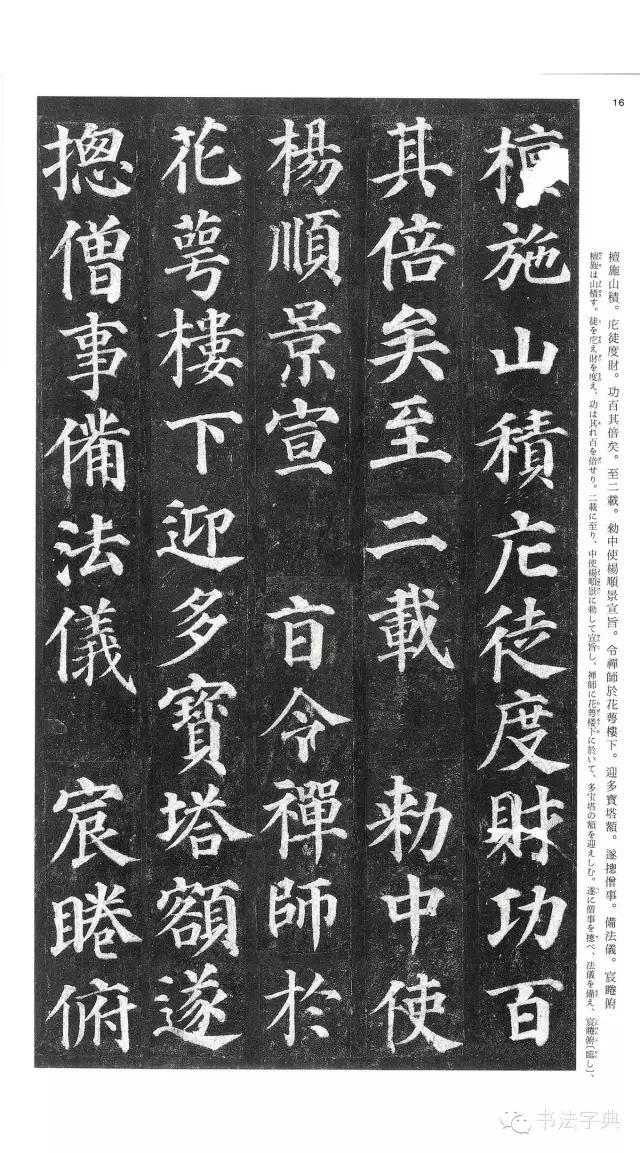 16
檀施山積。庀徒度財。功百其倍矣。至二載。勑中使楊順景宣旨。令禪師於花萼樓下。迎多寶塔額。遂摠僧事。備法儀。宸睠俯
檀施は山積す。徒を庀え財を度え、功は其れ百を倍せり。二載に至り、中使楊順景に勅して宣旨し、禅師に花萼楼下に於いて、多宝塔の額を迎えしむ。遂に僧事を摠べ、法儀を備え、宸睠俯〔臨し〕、
檀施山積庀徒度財功百
其倍矣至二載 勑中使
楊順景宣 旨令禪師於
花萼樓下迎多寶塔額遂
摠僧事備法儀 宸睠俯
书法字典